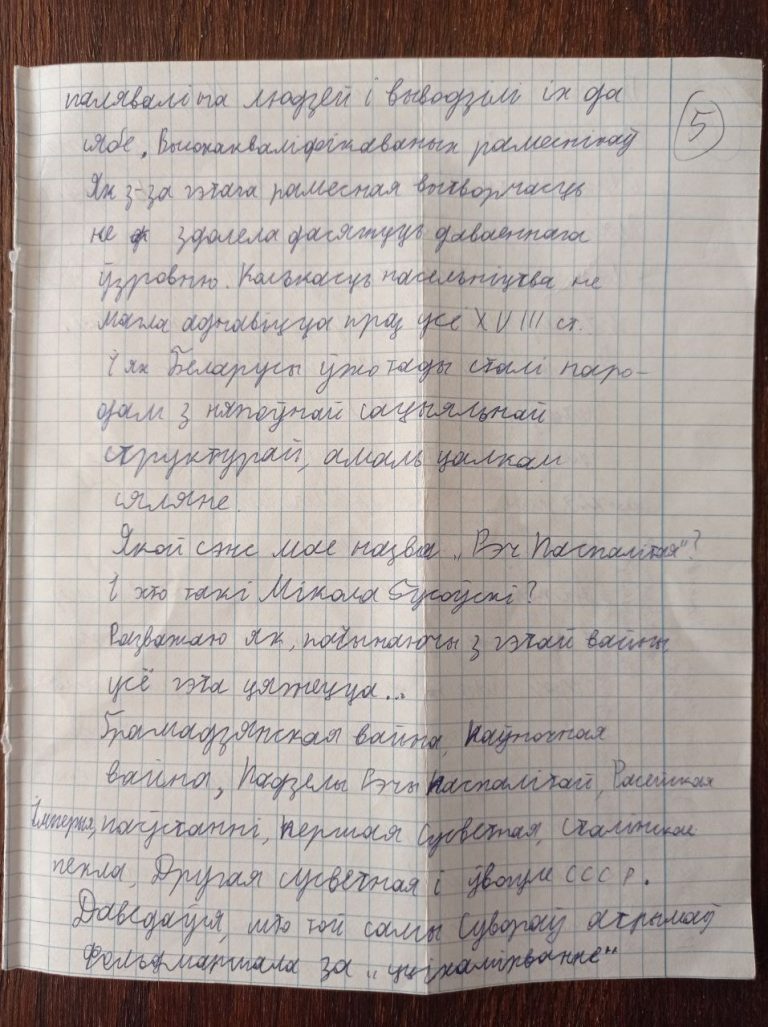 палявалі на людзей і выводзілі іх да
сябе. Высокакваліфікаваных рамеснікаў
5
Як з-за гэтага рамесная вытворчасць
не здолела дасягнуць даваеннага
ўзровню. Колькасць насельніцтва не
магла аднавіцца праз усё XVIII ст.
І як Беларусы ўжо тады сталі наро-
дам з няпоўнай сацыяльнай
структурай, амаль цалкам
сяляне.
Якой сэнс мае назва „Рэч Паспалітая"?
І хто такі Мікола Гусоўскі?
Разважаю як, пачынаючы з гэтай вайны
усё гэта цяжецца...
Грамадзянская вайна, Паўночная
вайна, Падзелы Рэчы Паспалітай, Расейская
Імперыя, паўстанні, Першая Сусветная, Сталінскае
пекла, Другая сусветная і ўвогуле СССР.
Даведаўся, што той самы Сувораў атрымаў
Фельдмаршала за